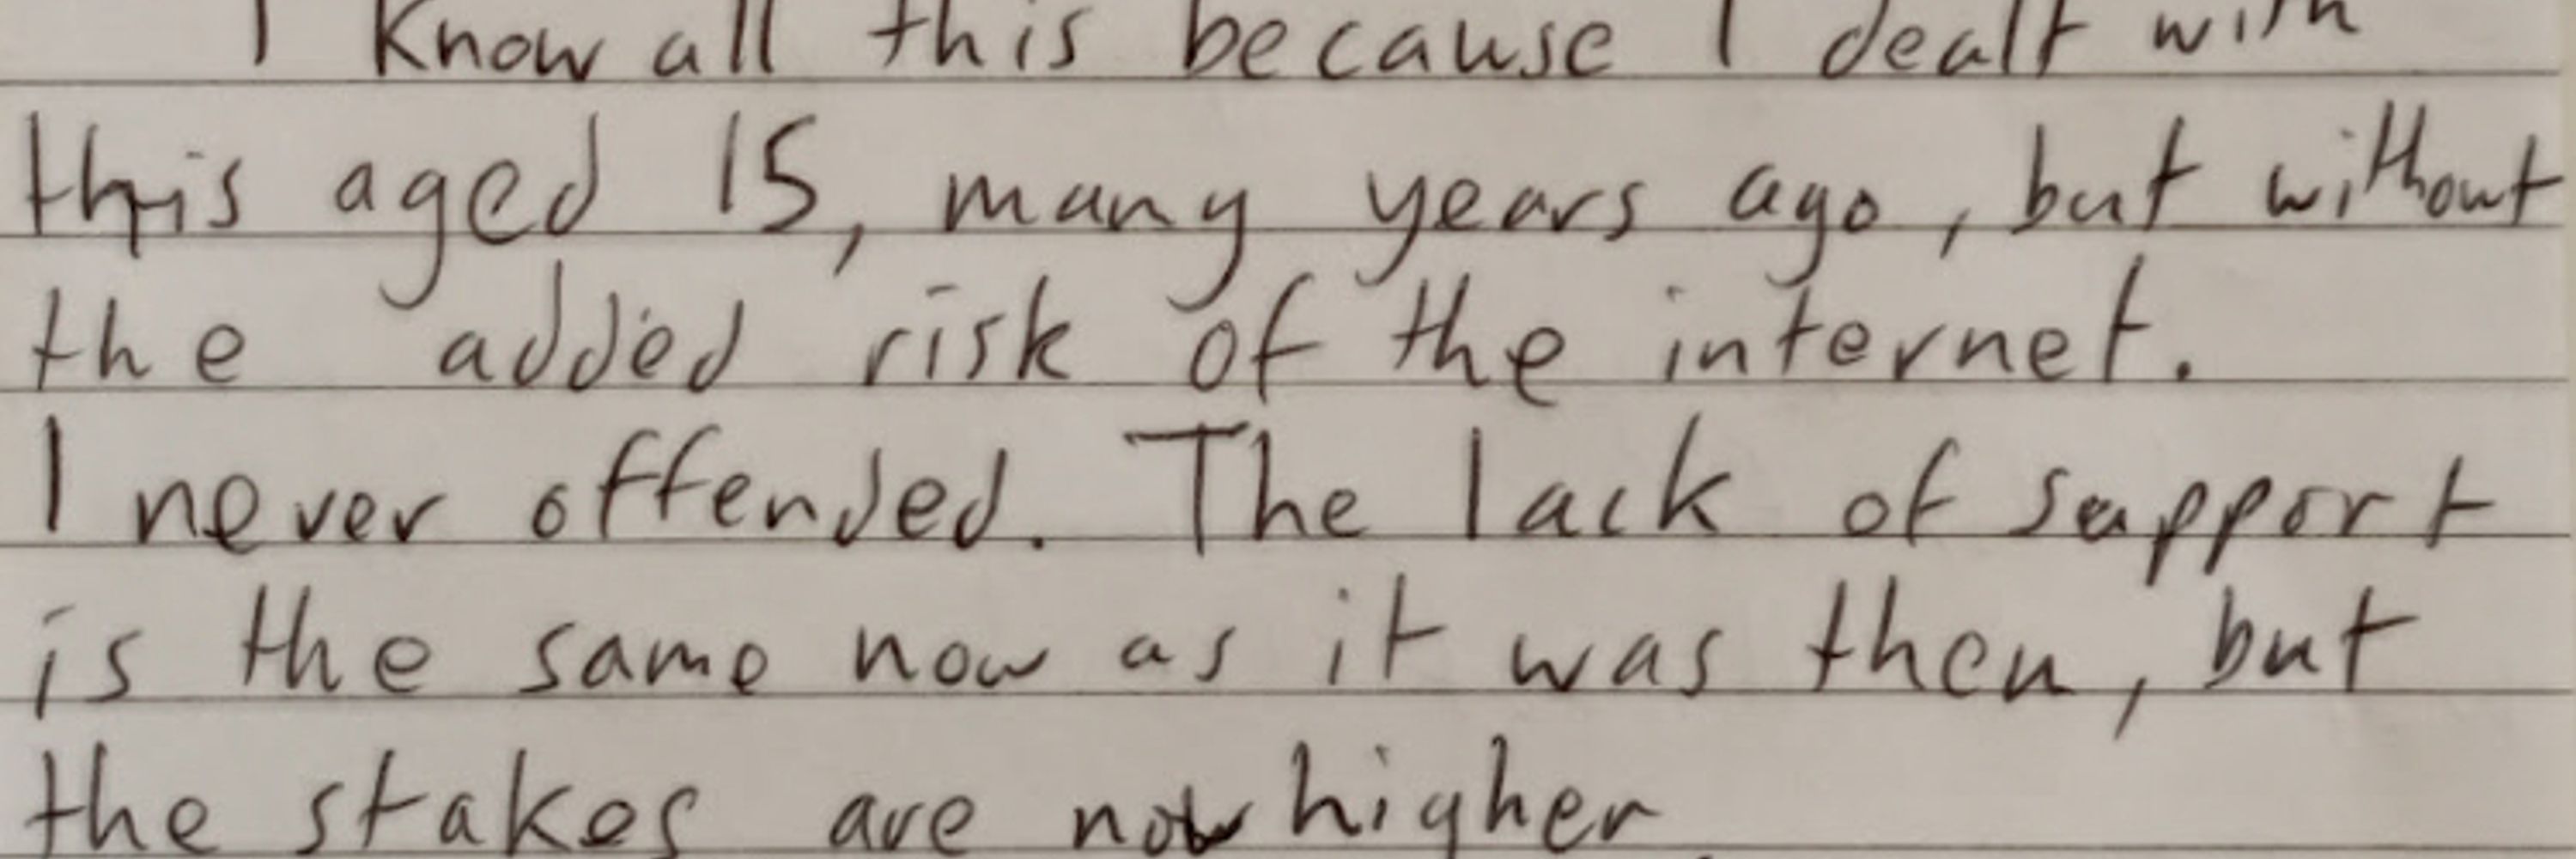 I know all this because I dealt with
this aged 15, many years ago, but without
the added risk of the internet.
I never offended. The lack of support
is the same now as it was then, but
the stakes are now higher.